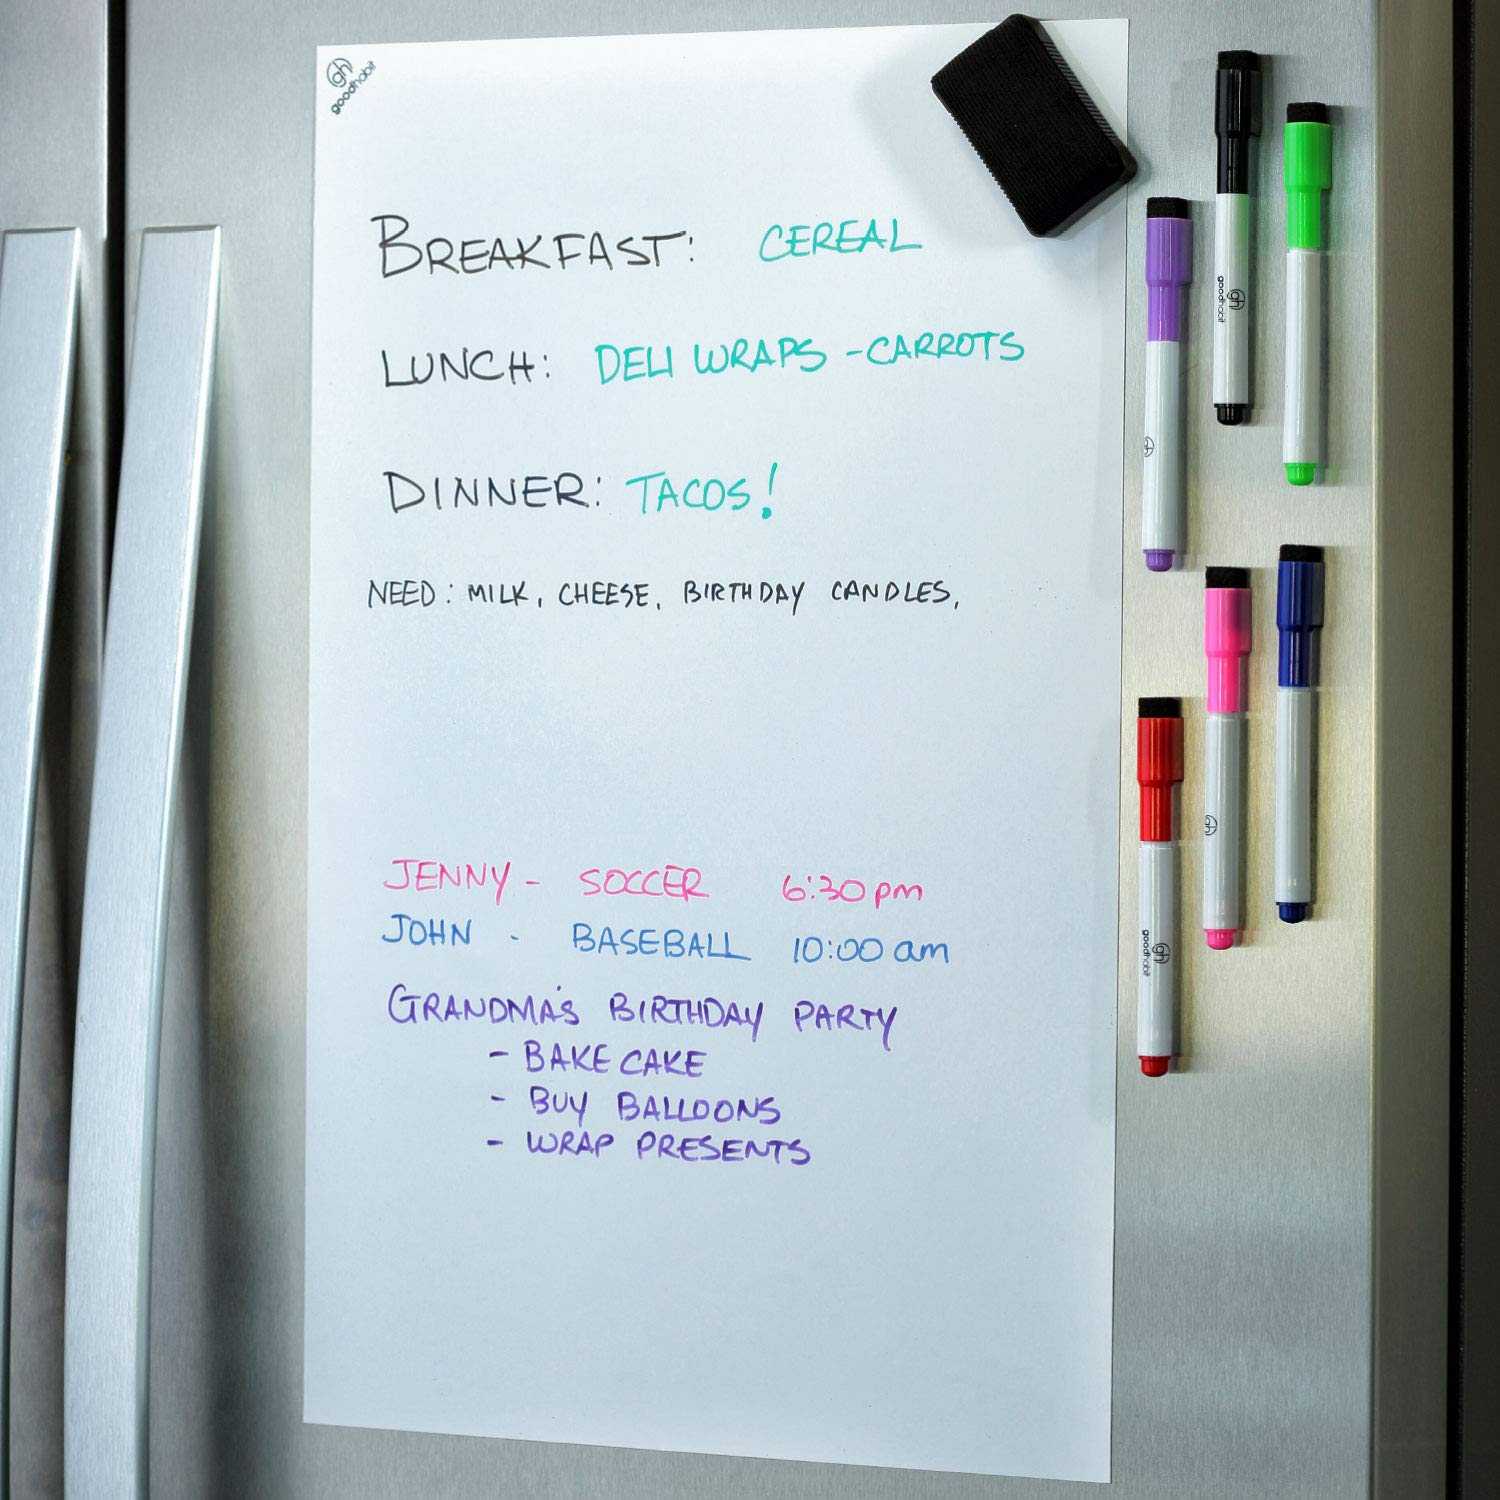 gh
goodhabit
BREAKFAST: CEREAL
LUNCH: DELI WRAPS - CARROTS
DINNER: TACOS!
NEED: MILK, CHEESE, BIRTHDAY CANDLES,
JENNY - SOCCER 6:30 pm
JOHN - BASEBALL 10:00 am
GRANDMA'S BIRTHDAY PARTY
- BAKE CAKE
- BUY BALLOONS
- WRAP PRESENTS
gh
goodhabit
gh
gh
gh
goodhabit